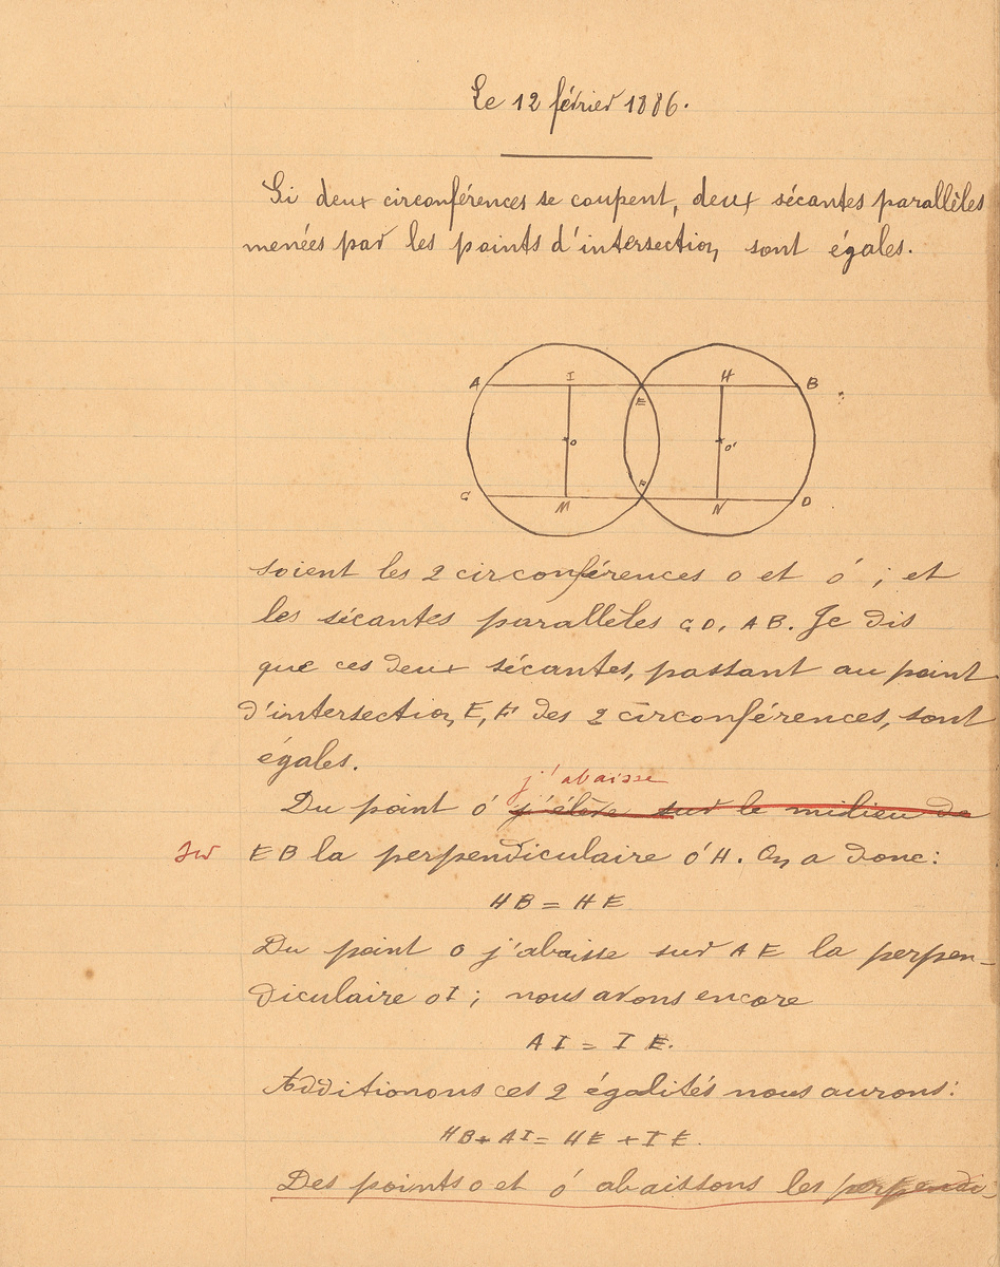 Le 12 février 1886.
Si deux circonférences se coupent, deux sécantes parallèles
menées par les points d'intersection sont égales.
A I H B
E
O O'
F
C M N D
soient les 2 circonférences o et o' ; et
les sécantes parallèles CD, AB. Je dis
que ces deux sécantes, passant au point
d'intersection E, F des 2 circonférences, sont
égales.
j'abaisse
Du point o' j'élève sur le milieu de
sur EB la perpendiculaire o'H. On a donc:
HB = HE
Du point o j'abaisse sur AE la perpen-
diculaire oI ; nous avons encore
AI = IE.
Additionons ces 2 égalités nous aurons:
HB + AI = HE + IE.
Des points o et o' abaissons les perpendi-